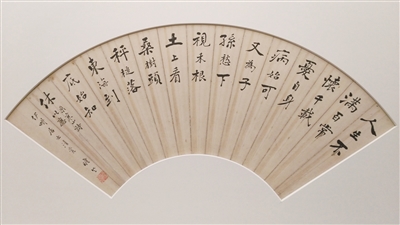 人生不
滿百常
懷千載
憂自身
病始可
又為子
孫愁下
視禾根
土上看
桑樹頭
秤槌落
東海到
底始知
休